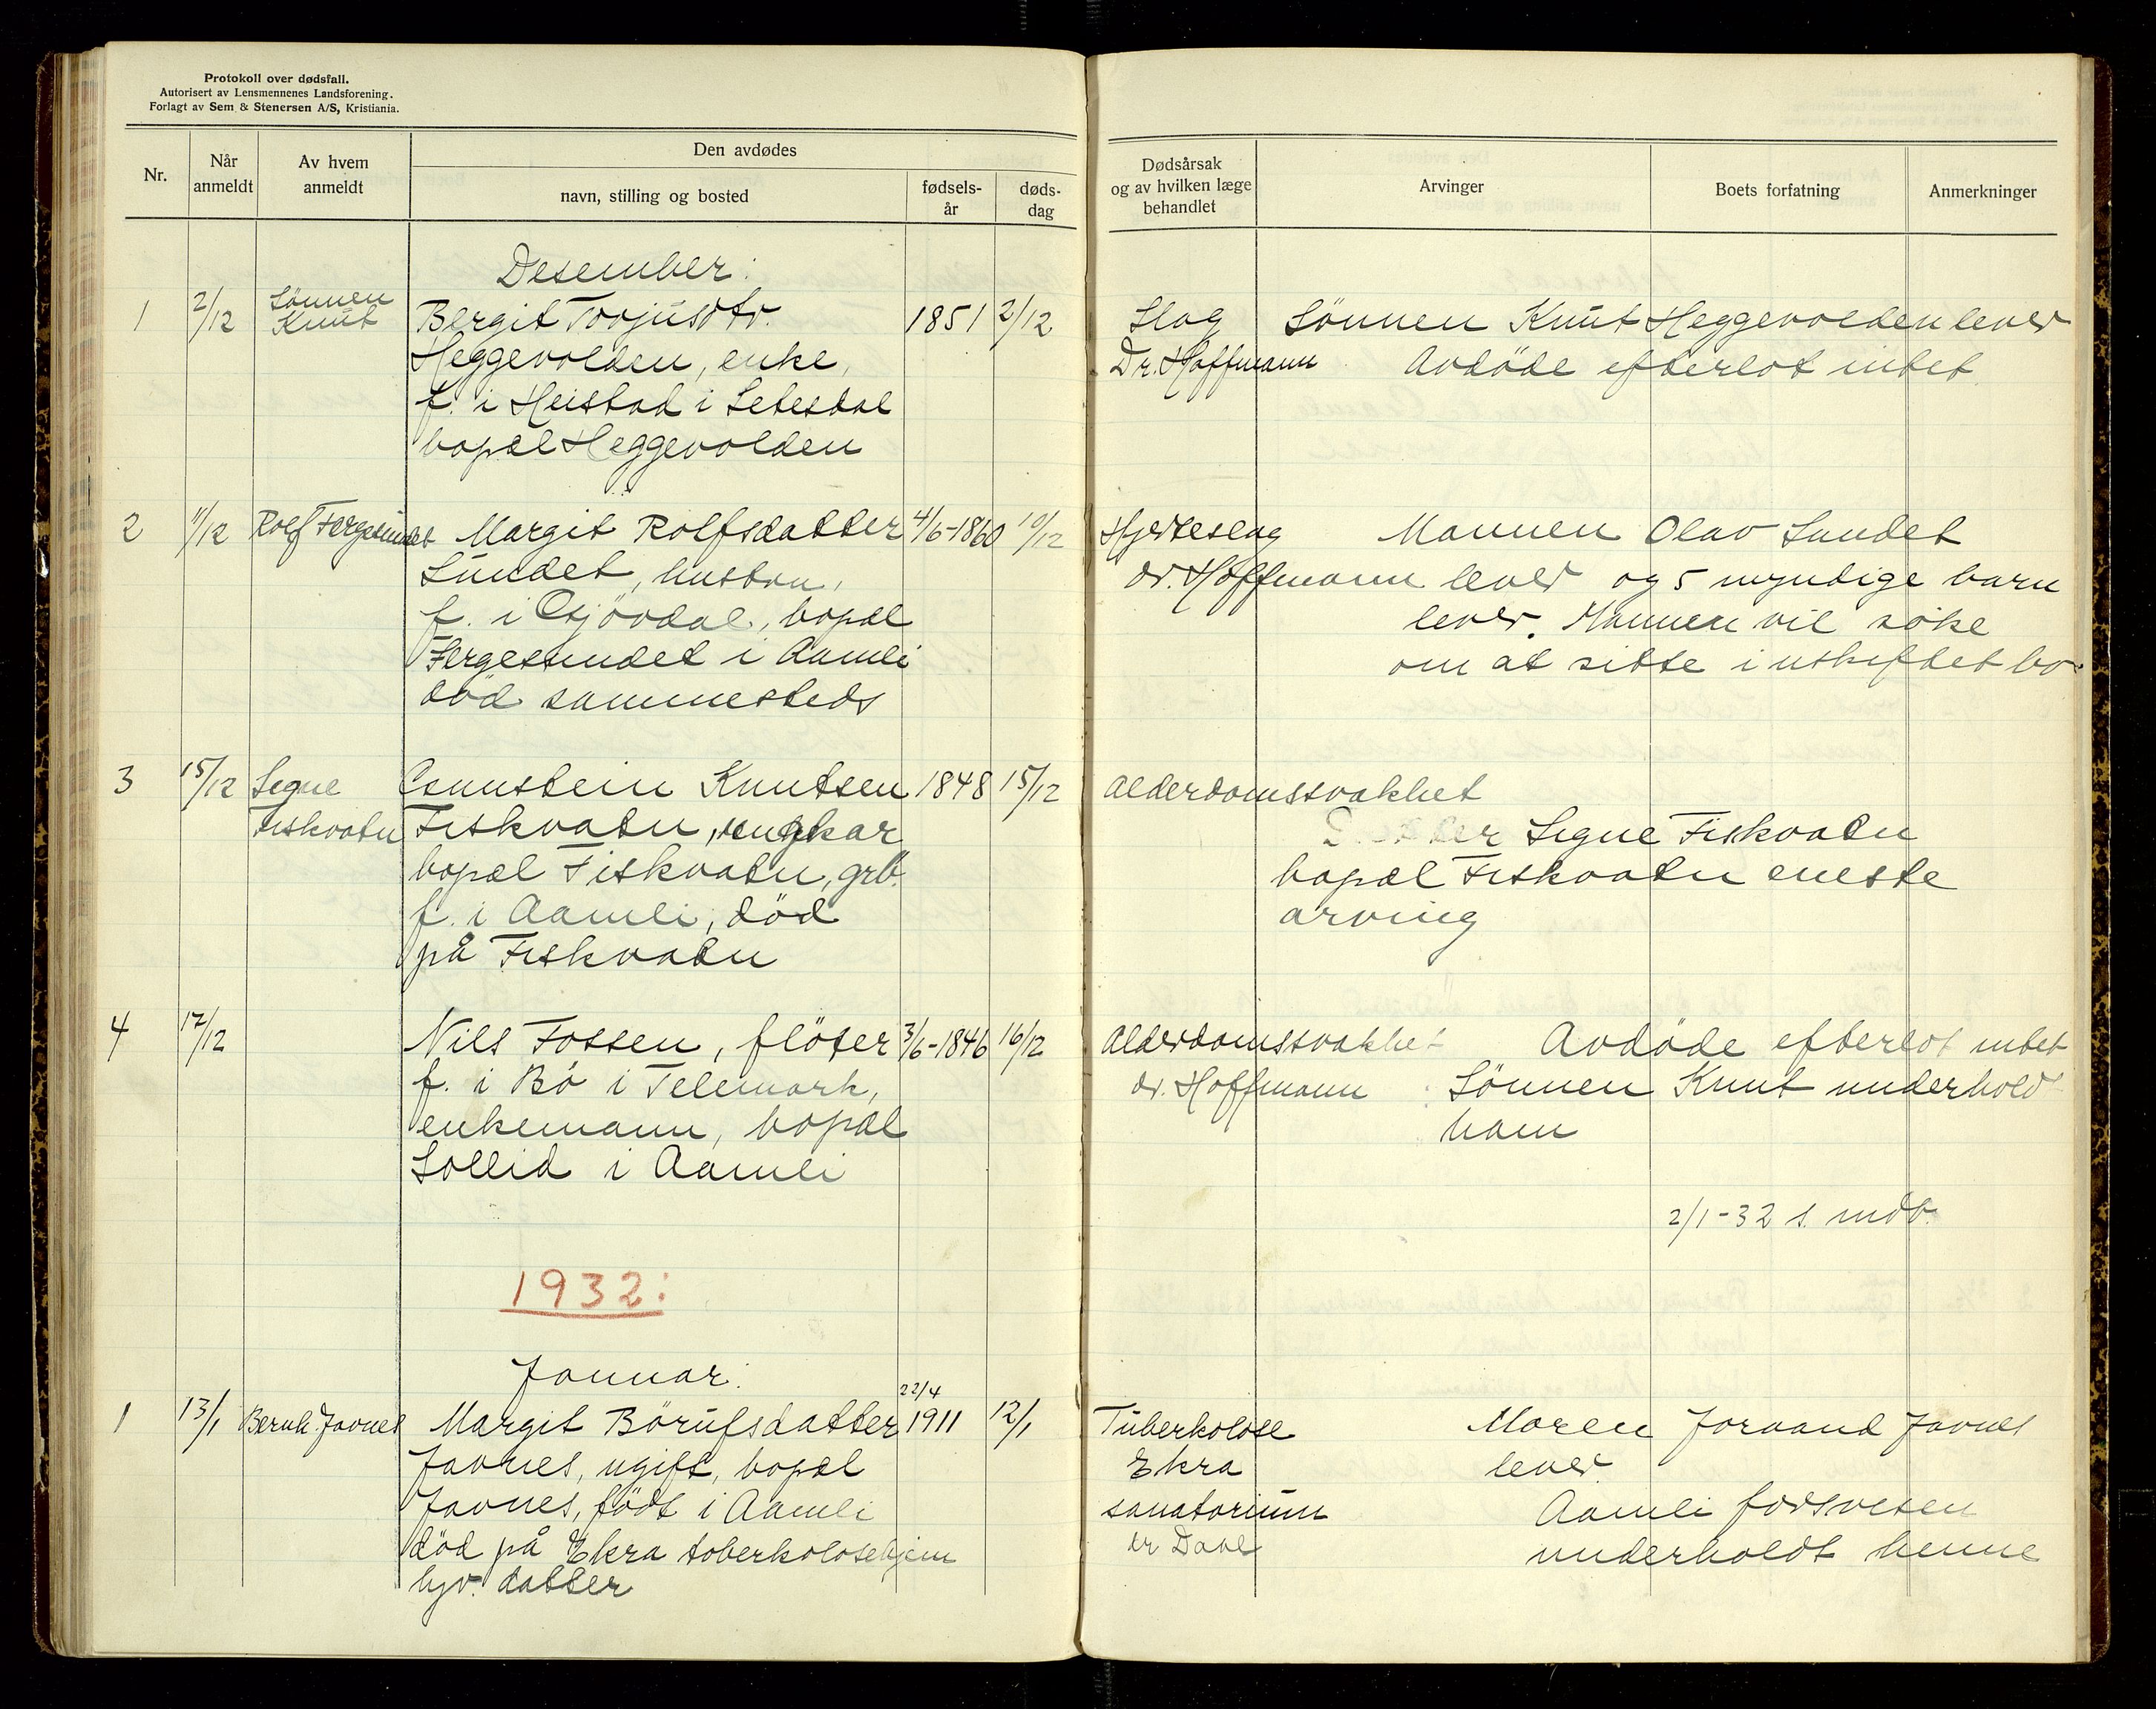 Protokoll over dødsfall.
Autorisert av Lensmennenes Landsforening.
Forlagt av Sem & Stenersen A/S, Kristiania.
Nr.
Når anmeldt
Av hvem anmeldt
Den avdødes
navn, stilling og bosted
fødsels-år
døds-dag
Dødsårsak og av hvilken læge behandlet
Arvinger
Boets forfatning
Anmerkninger
Desember:
1 2/12 Sönnen Knut Bergit Torjusdtr. 1851 2/12 Slag Sönnen Knut Heggevolden lever
Heggevolden, enke, Dr. Hoffmann Avdöde efterlot intet
f. i Heistad i Setesdal
bopæl Heggevolden
2 11/12 Rolf Fergesundet Margit Rolfsdatter 4/6-1860 10/12 Hjerteslag Mannen Olav Sundet
Sundet, hustru, dr. Hoffmann lever og 5 myndige barn
f. i Gjövdal, bopæl lever. Mannen vil söke
Fergesundet i Aamli om at sitte i uskiftet bo.
död sammesteds
3 15/12 Signe Gunnstein Knutsen 1848 15/12 Alderdomssvakhet
Fiskvatn Fiskvatn, ungkar Signe Fiskvatn
bopæl Fiskvatn, grb. bopæl Fiskvatn eneste
f. i Aamli, död arving
på Fiskvatn
4 17/12 Nils Fossen, flöter 3/6-1846 16/12 Alderdomssvakhet Avdöde efterlot intet
f. i Bö i Telemark, dr. Hoffmann Sönnen Knut underhold
enkemann, bopæl ham
Sollid i Aamli
2/1-32 s. mdb.
1932:
Januar:
22/4
1 13/1 Bernh. Javnes Margit Börufsdatter 1911 12/1 Tuberkolose Moren Joraand Javnes
Javnes, ugift, bopæl Ekra lever
Javnes, födt i Aamli sanatorium Aamli forsvesen
död på Ekra toberkolosehjem dr Dahl underholdt henne
hjv. datter